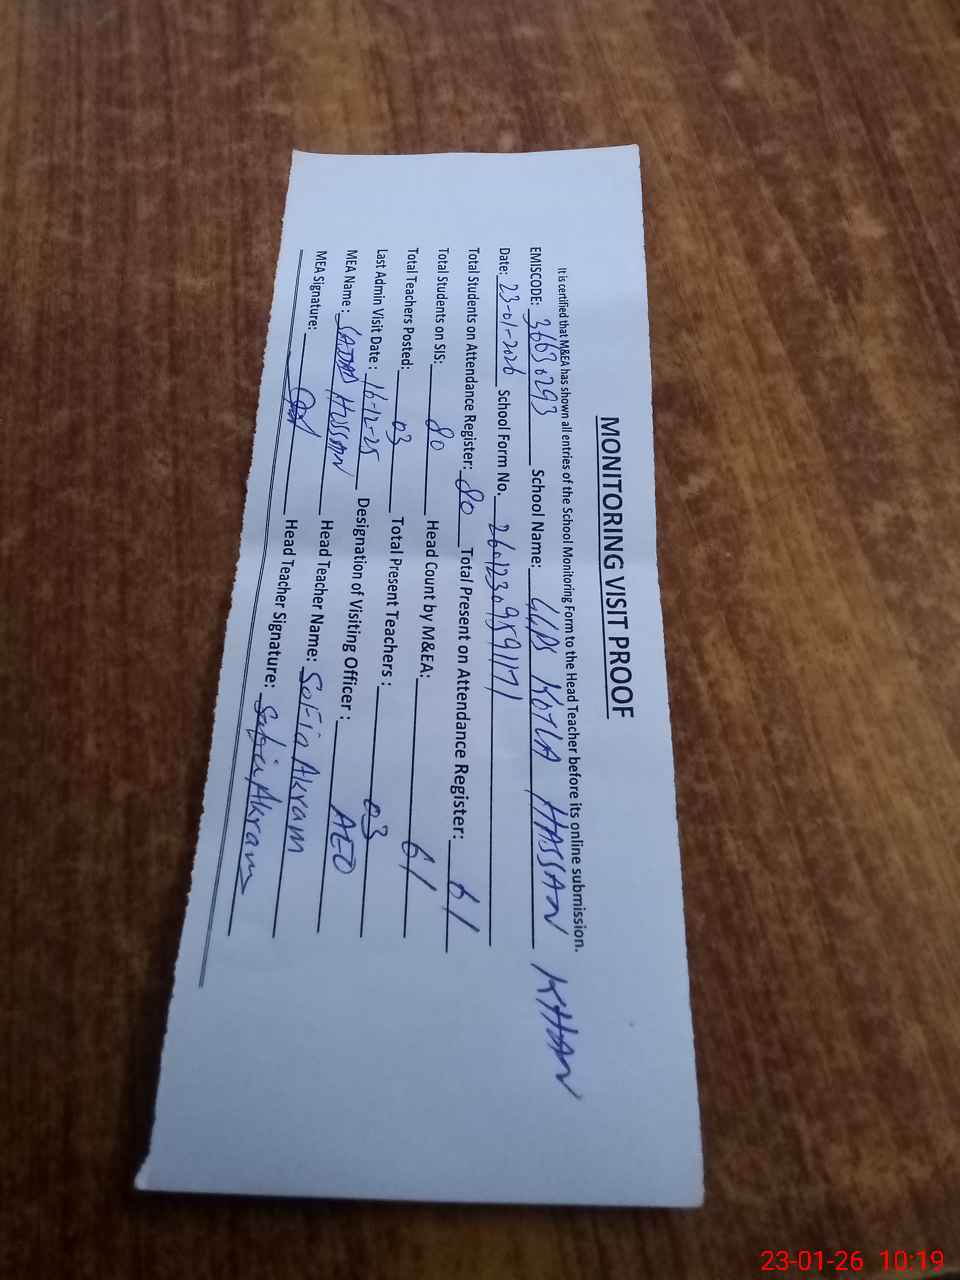 MONITORING VISIT PROOF
It is certified that M&EA has shown all entries of the School Monitoring Form to the Head Teacher before its online submission.
EMISCODE: 36630293 School Name: GGPS KOTLA HASSAN KHAN
Date: 23-01-2026 School Form No. 260123095911171
Total Students on Attendance Register: 80 Total Present on Attendance Register: 61
Total Students on SIS: 80 Head Count by M&EA: 61
Total Teachers Posted: 03 Total Present Teachers : 03
Last Admin Visit Date : 16-12-25 Designation of Visiting Officer : AEO
MEA Name : SAJJAD HUSSAIN Head Teacher Name: Sofia Akram
MEA Signature: Head Teacher Signature: Sofia Akram
23-01-26 10:19